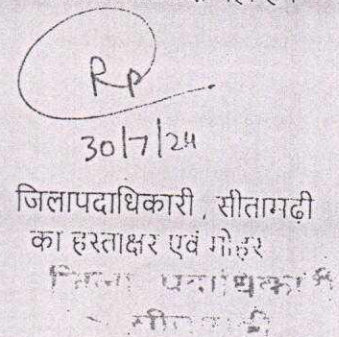 Rp
30/7/24
जिलापदाधिकारी, सीतामढ़ी
का हस्ताक्षर एवं मोहर
जिला पदाधिकारी
सीतामढ़ी